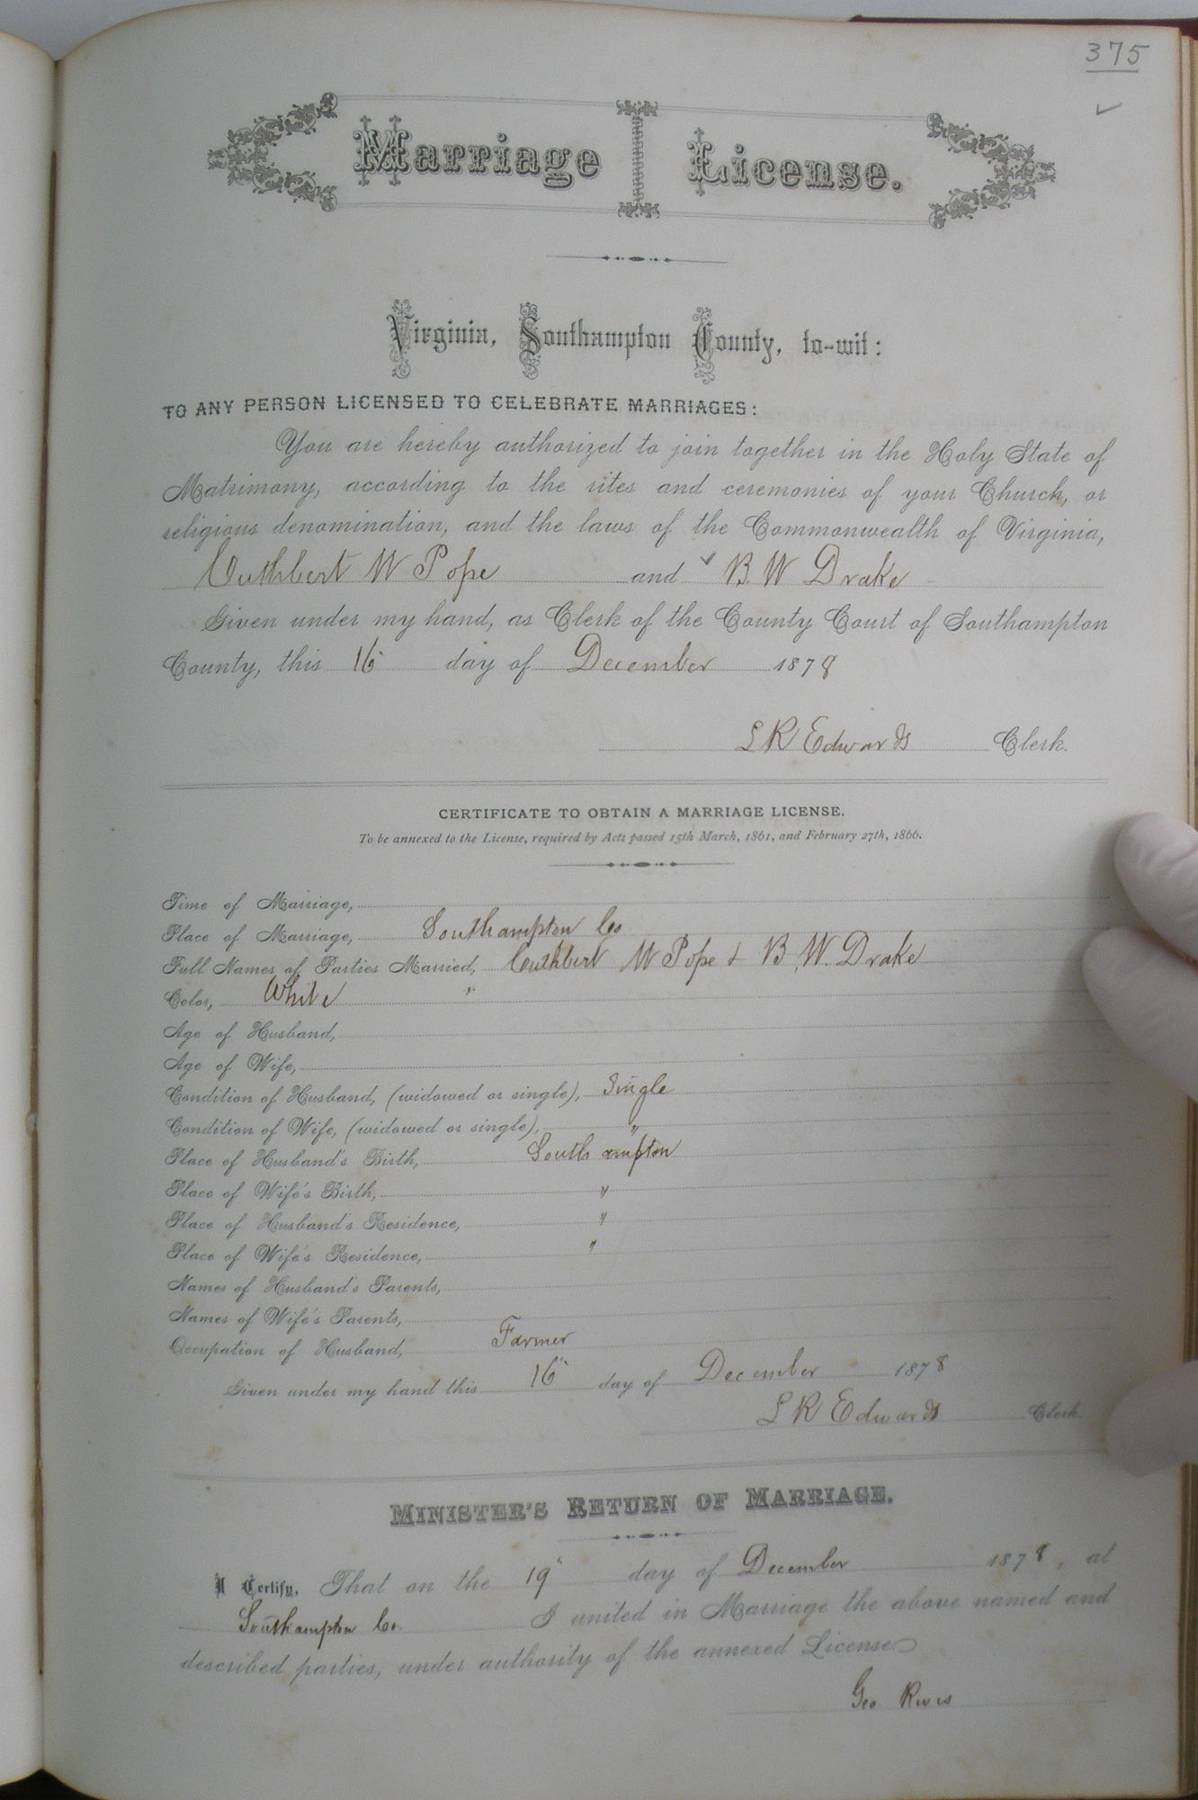 375
✓
Marriage License.
Virginia, Southampton County, to-wit:
TO ANY PERSON LICENSED TO CELEBRATE MARRIAGES:
You are hereby authorized to join together in the Holy State of
Matrimony, according to the rites and ceremonies of your Church, or
religious denomination, and the laws of the Commonwealth of Virginia,
Cuthbert W Pope and ✓ B. W Drake
Given under my hand, as Clerk of the County Court of Southampton
County, this 16" day of December 1878
L R Edwards Clerk.
CERTIFICATE TO OBTAIN A MARRIAGE LICENSE.
To be annexed to the License, required by Acts passed 15th March, 1861, and February 27th, 1866.
Time of Marriage,
Place of Marriage, Southampton Co
Full Names of Parties Married, Cuthbert W Pope & B. W. Drake
Color, White "
Age of Husband,
Age of Wife,
Condition of Husband, (widowed or single), Single
Condition of Wife, (widowed or single), "
Place of Husband's Birth, Southampton
Place of Wife's Birth, "
Place of Husband's Residence, "
Place of Wife's Residence, "
Names of Husband's Parents,
Names of Wife's Parents,
Occupation of Husband, Farmer
Given under my hand this 16" day of December 1878
L R Edwards Clerk
MINISTER'S RETURN OF MARRIAGE.
I Certify, That on the 19" day of December 1878, at
Southampton Co. I united in Marriage the above named and
described parties, under authority of the annexed License
Geo Rives